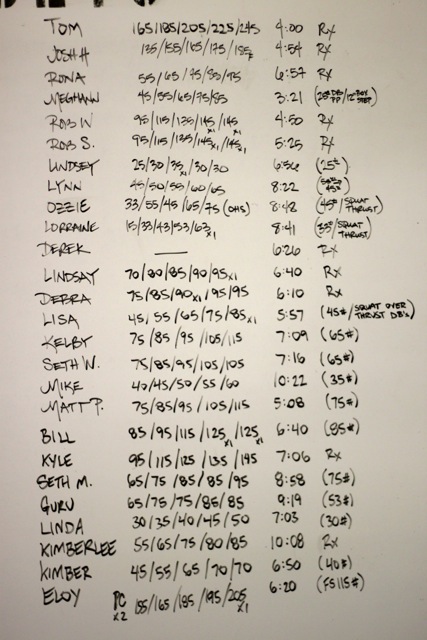 TOM 165/185/205/225/245 4:00 Rx
JOSH H 135/155/165/175/185x 4:54 Rx
RONA 55/65/75/85/95 6:57 Rx
MEGHANN 45/55/65/75/85 3:21
ROB W 95/115/135/145x1/145x1 4:50 Rx
ROB S. 95/115/135/145x1/145x1 5:25 Rx
LINDSEY 25/30/35x1/30/30 6:56 (25#)
LYNN 45/50/55/60/65 8:22
OZZIE 33/55/45/65/75 (OHS) 8:42 (45#/SQUAT THRUST)
LORRAINE 15/33/43/53/63x1 8:41 (35#/SQUAT THRUST)
DEREK — 6:26 Rx
LINDSAY 70/80/85/90/95x1 6:40 Rx
DEBRA 75/85/90x1/95/95 6:10 Rx
LISA 45/55/65/75/85x1 5:57 (45#/SQUAT OVER THRUST DB's)
KELBY 75/85/95/105/115 7:09 (65#)
SETH W. 75/85/95/105/105 7:16 (65#)
MIKE 40/45/50/55/60 10:22 (35#)
MATT P. 75/85/95/105/115 5:08 (75#)
BILL 85/95/115/125x1/125x1 6:40 (85#)
KYLE 95/115/125/135/145 7:06 Rx
SETH M. 65/75/85/85/95 8:58 (75#)
GURU 65/75/75/85/85 9:19 (53#)
LINDA 30/35/40/45/50 7:03 (30#)
KIMBERLEE 55/65/75/80/85 10:08 Rx
KIMBER 45/55/65/70/70 6:50 (40#)
ELOY PC x2 155/165/185/195/205x1 6:20 (FS115#)